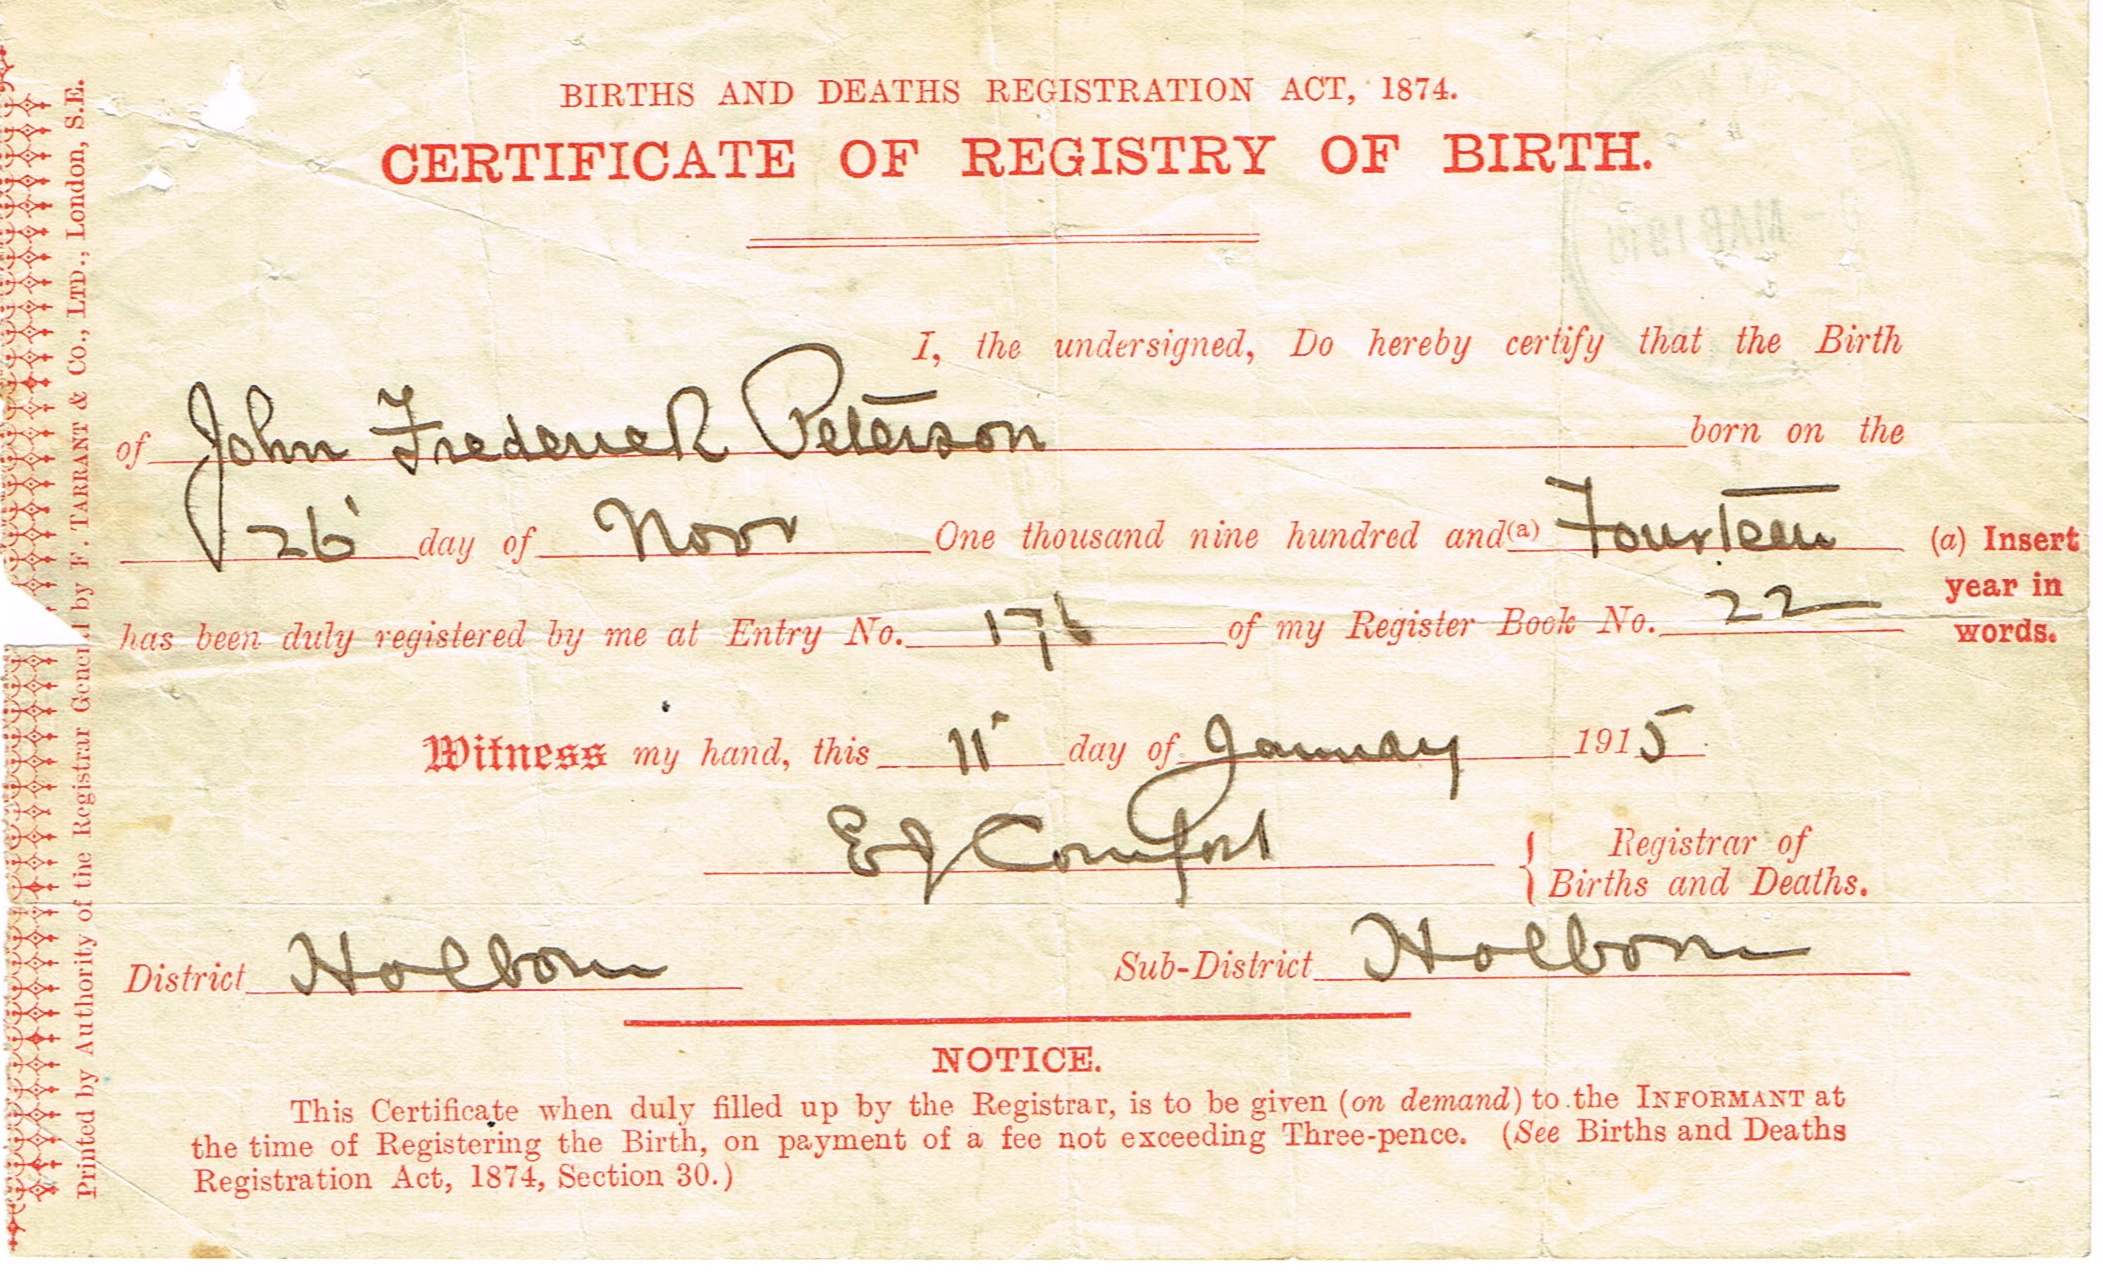 BIRTHS AND DEATHS REGISTRATION ACT, 1874.
CERTIFICATE OF REGISTRY OF BIRTH.
I, the undersigned, Do hereby certify that the Birth
of John Frederick Peterson born on the
26 day of Novr One thousand nine hundred and (a) Fourteen
(a) Insert year in words.
has been duly registered by me at Entry No. 176 of my Register Book No. 22
Witness my hand, this 11 day of January 1915
EJ Comfort Registrar of
Births and Deaths.
District Holborn Sub-District Holborn
NOTICE.
This Certificate when duly filled up by the Registrar, is to be given (on demand) to the INFORMANT at
the time of Registering the Birth, on payment of a fee not exceeding Three-pence. (See Births and Deaths
Registration Act, 1874, Section 30.)
Printed by Authority of the Registrar General by F. TARRANT & CO., LTD., London, S.E.